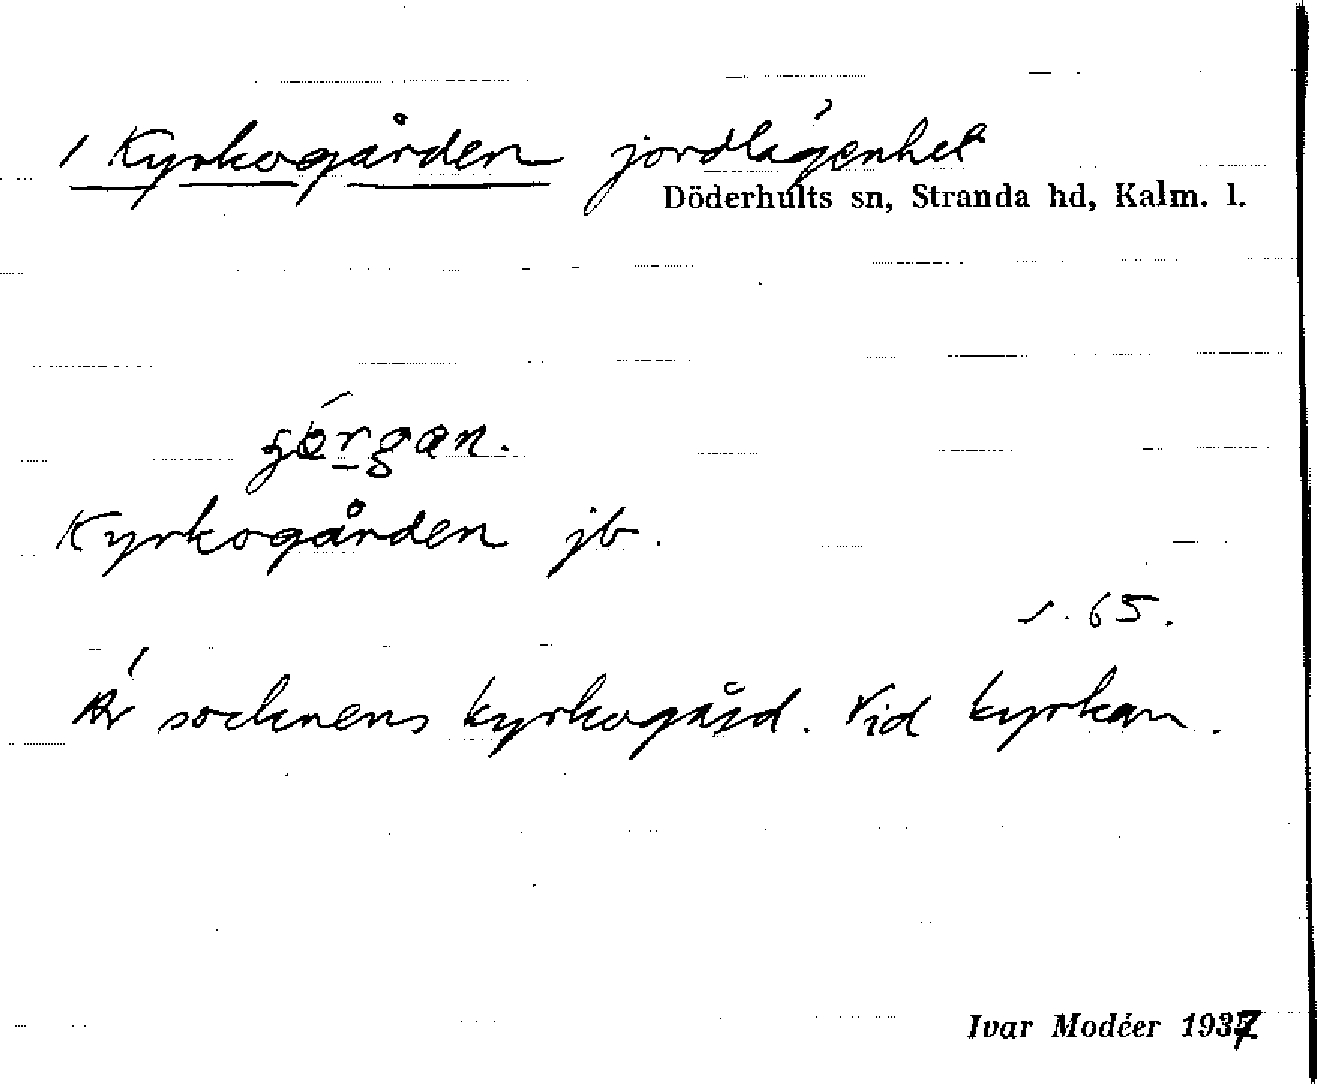 1 Kyrkogården jordlägenhet
Döderhults sn, Stranda hd, Kalm. l.
Kyrkogården jb.
s. 65.
Är socknens kyrkogård. Vid kyrkan.
Ivar Modéer 1937